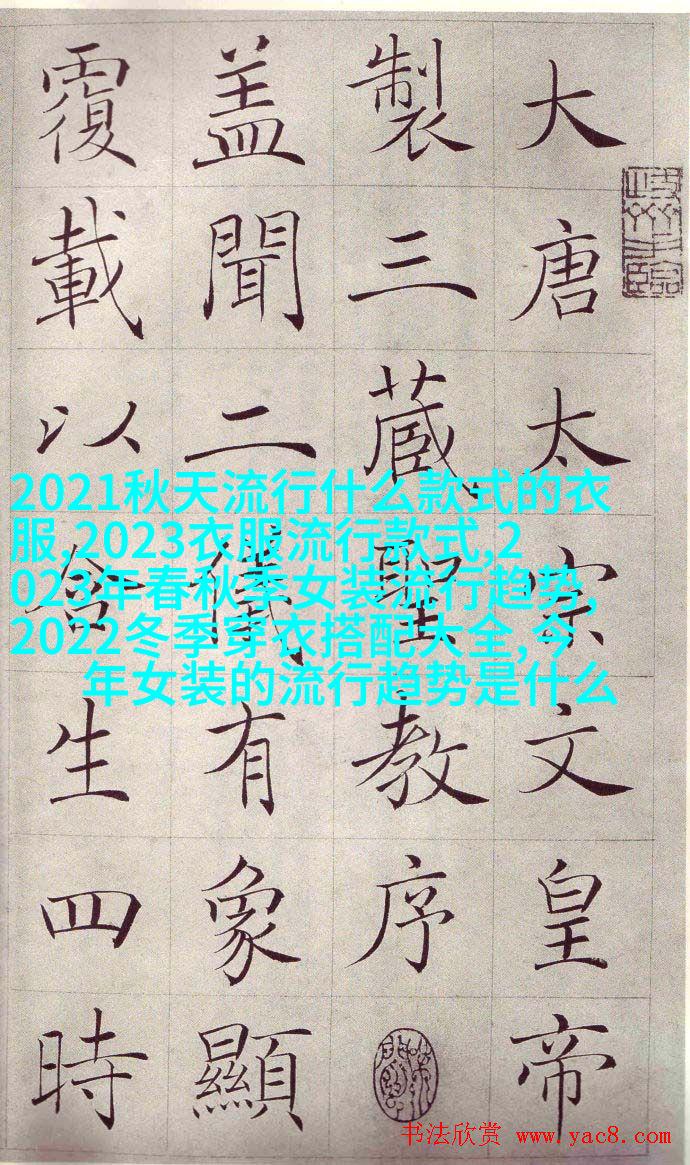 大唐太宗文皇帝
製三蔵聖教序
盖聞二儀有象顯
覆載以含生四時
2021秋天流行什么款式的衣
服,2023衣服流行款式,2
023年春秋季女装流行趋势,
2022冬季穿衣搭配大全,今
年女装的流行趋势是什么
书法欣赏 www.yac8.com